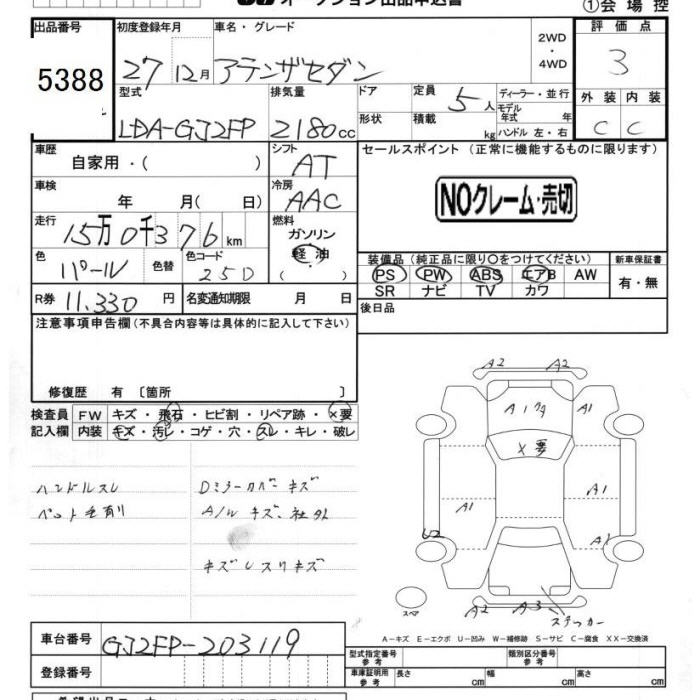 オークション出品申込書
①会場控
出品番号 5388
初度登録年月 27 12月
車名・グレード アテンザセダン
2WD ・ 4WD
評価点 3
型式 LDA-GJ2FP
排気量 2180cc
ドア 形状
定員 5人
積載 kg
ディーラー・並行
モデル年式 年
ハンドル 左・右
外装 内装
C C
車歴 自家用・( )
シフト AT
セールスポイント (正常に機能するものに限ります)
車検 年 月( 日)
冷房 AAC
NOクレーム・売切
走行 15万0千376km
燃料 ガソリン 軽油 ( ・ )
色 パール 色替
色コード 25D
装備品 (純正品に限り〇をつけてください)
新車保証書
PS PW ABS エアB AW
SR ナビ TV カワ
有・無
R券 11,330円
名変通知期限 月 日
後日品
注意事項申告欄 (不具合内容等は具体的に記入して下さい)
修復歴 有 〔箇所 〕
検査員記入欄
FW キズ・飛石・ヒビ割・リペア跡・×要
内装 キズ・汚レ・コゲ・穴・スレ・キレ・破レ
ハンドルスレ
Dミラーカバーキズ
ペット毛有り
A/W キズ、社外
キズレスリキズ
A2 A2
A1 A1
×要
A1 A1
U2 A1
スペア
A2 A3 ステッカー
A-キズ E-エクボ U-凹み W-補修跡 S-サビ C-腐食 XX-交換済
車台番号 GJ2FP-203119
登録番号
型式指定番号 参考
類別区分番号 参考
車庫証明用 参考
長さ cm
幅 cm
高さ cm